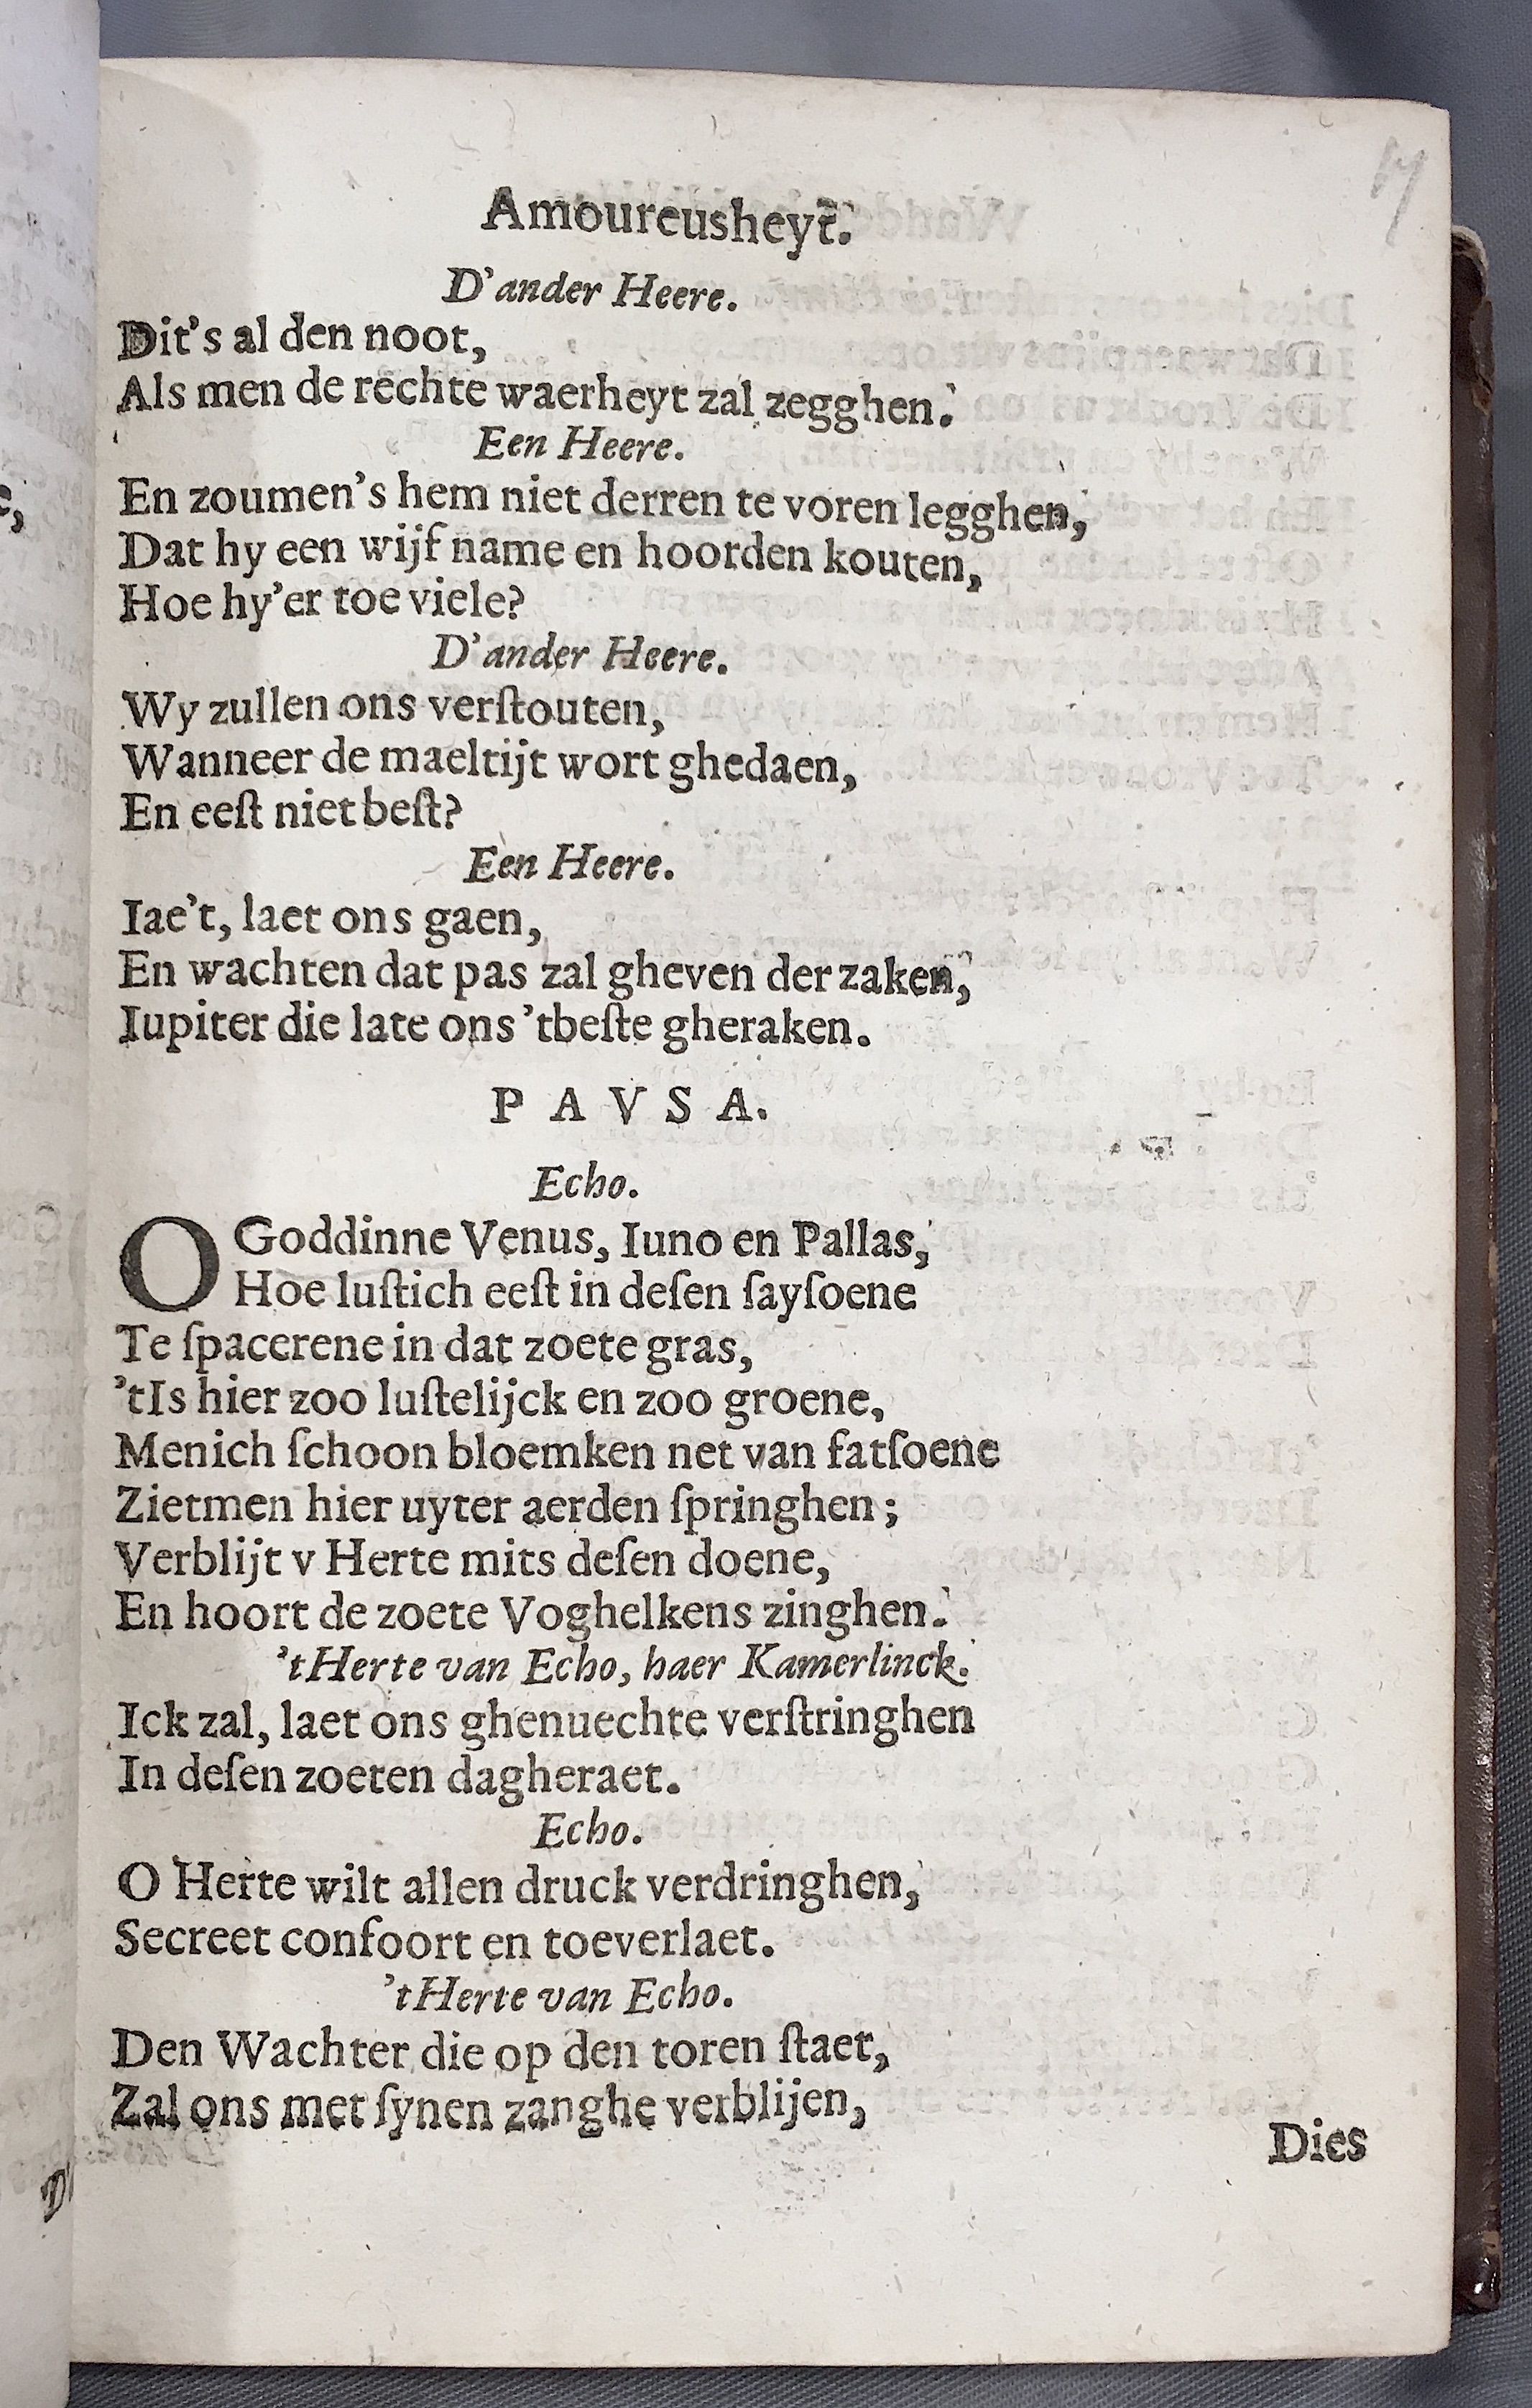 17
Amoureusheyt.
D'ander Heere.
Dit's al den noot,
Als men de rechte waerheyt zal zegghen.
Een Heere.
En zoumen's hem niet derren te voren legghen,
Dat hy een wijf name en hoorden kouten,
Hoe hy'er toe viele?
D'ander Heere.
Wy zullen ons verſtouten,
Wanneer de maeltijt wort ghedaen,
En eeſt niet beſt?
Een Heere.
Iae't, laet ons gaen,
En wachten dat pas zal gheven der zaken,
Iupiter die late ons 'tbeſte gheraken.
PAVSA.
Echo.
O Goddinne Venus, Iuno en Pallas,
Hoe luſtich eeſt in deſen ſayſoene
Te ſpacerene in dat zoete gras,
'tIs hier zoo luſtelijck en zoo groene,
Menich ſchoon bloemken net van fatſoene
Zietmen hier uyter aerden ſpringhen;
Verblijt v Herte mits deſen doene,
En hoort de zoete Voghelkens zinghen.
'tHerte van Echo, haer Kamerlinck.
Ick zal, laet ons ghenuechte verſtringhen
In deſen zoeten dagheraet.
Echo.
O Herte wilt allen druck verdringhen,
Secreet confoort en toeverlaet.
'tHerte van Echo.
Den Wachter die op den toren ſtaet,
Zal ons met ſynen zanghe verblijen,
Dies